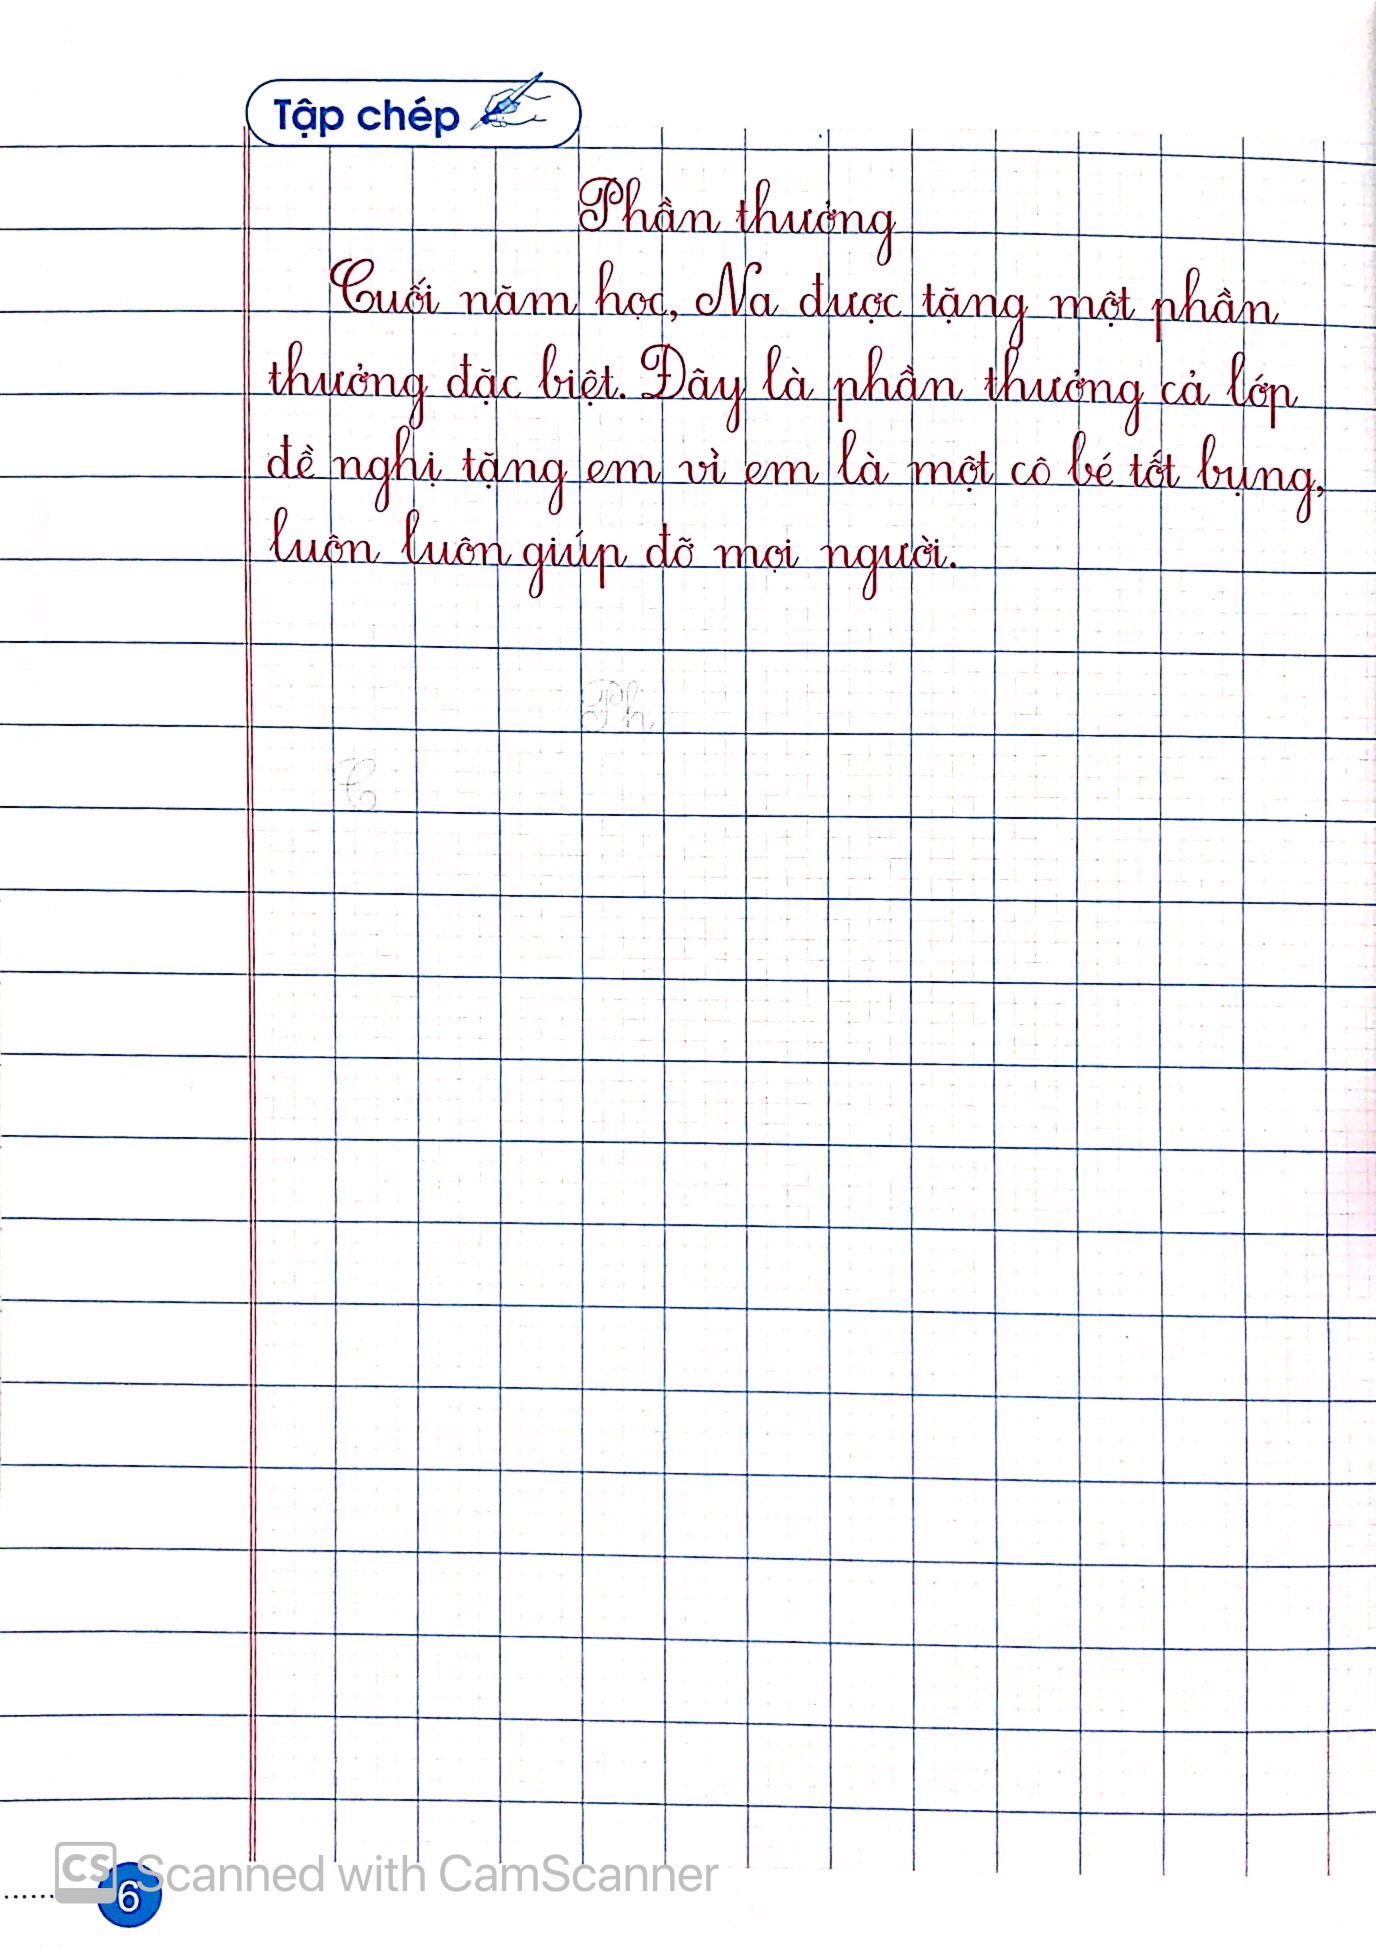 Tập chép
Phần thưởng
Cuối năm học, Na được tặng một phần
thưởng đặc biệt. Đây là phần thưởng cả lớp
đề nghị tặng em vì em là một cô bé tốt bụng,
luôn luôn giúp đỡ mọi người.
Ph
C
CS Scanned with CamScanner
6